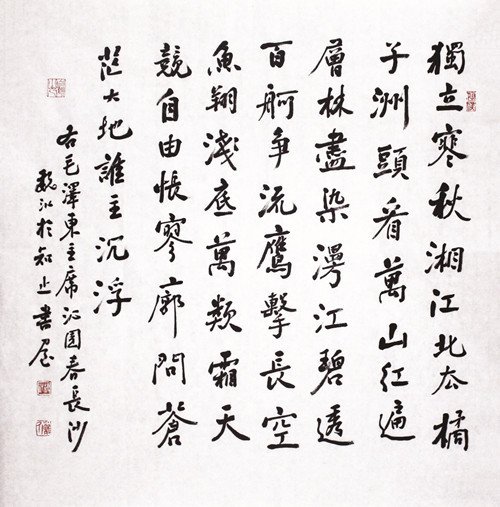 獨立寒秋湘江北去橘
子洲頭看萬山紅遍
層林盡染漫江碧透
百舸争流鷹擊長空
魚翔淺底萬類霜天
競自由悵寥廓問蒼
茫大地誰主沉浮
右毛澤東主席沁園春長沙
於知止書屋